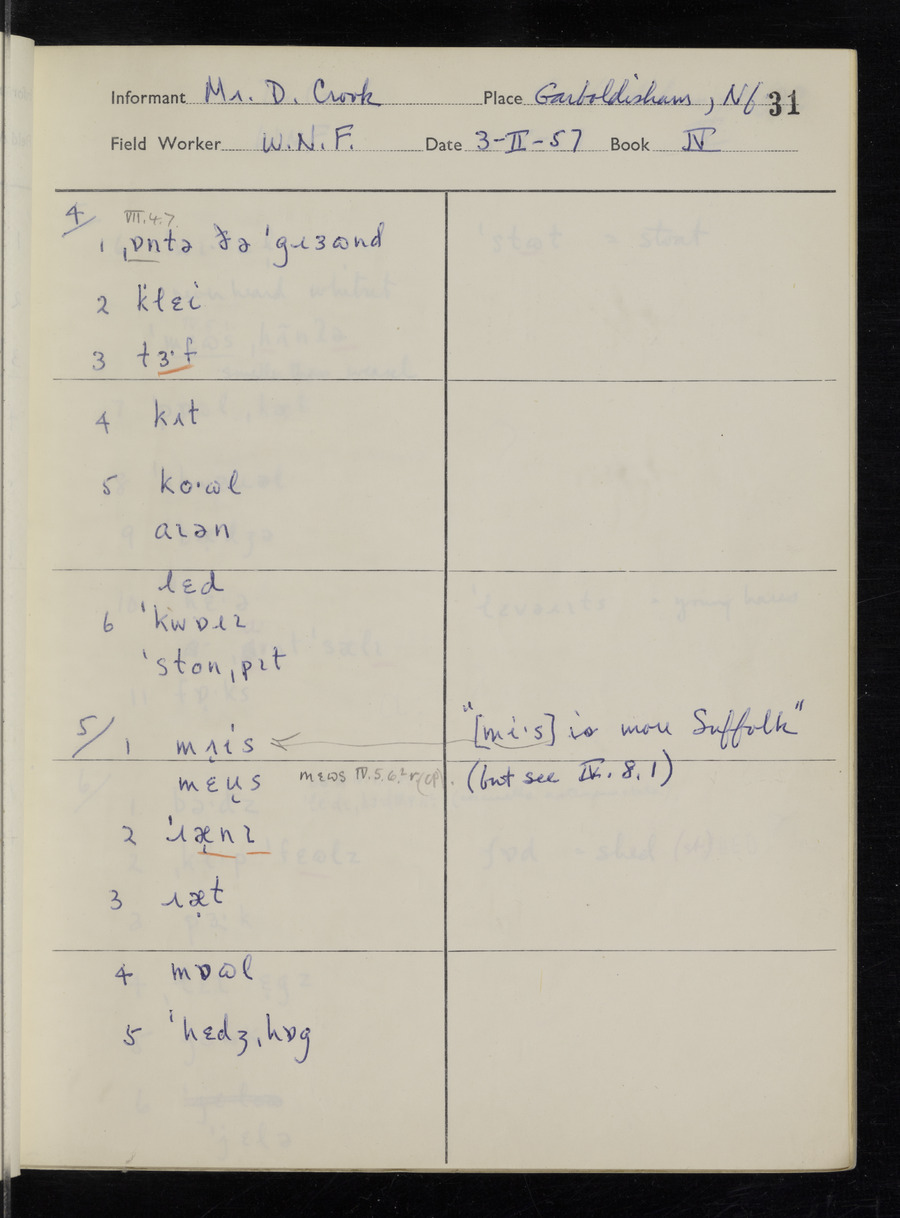 Informant Mr. D. Crook Place Garboldisham, Nf 31
Field Worker W.N.F. Date 3-II-57 Book IV
4/ VII.4.7
1 ˌɒntə ðə ˈgɹɛʊnd
2 klɛi
3 tɜ·f
4 kɪt
5 ko·ɷl
aɪən
lɛd
6 ˈkwɒɹɪ
ˈstonˌpɪt
5/ 1 mɹis "[mi·s] is more Suffolk"
mɛụs mɛɷs IV.5.6. (but see IV.8.1)
2 ˈɹæ̣nɪ
3 ɹæ̣t
4 mɒɷl
5 ˈhɛdʒˌhɒg